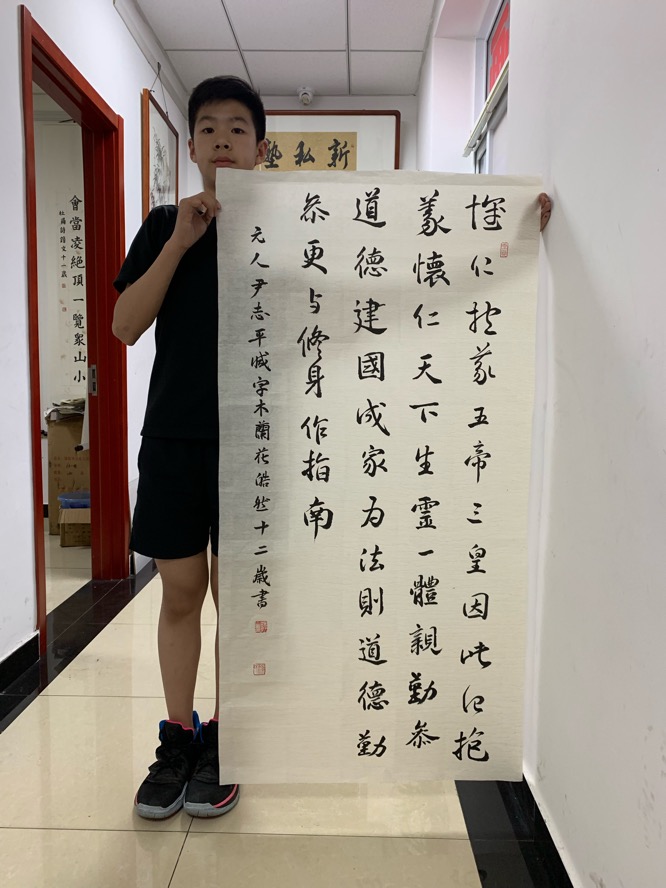 新私塾
懷仁抱義五帝三皇因此起抱
義懷仁天下生靈一體親勤叅
道德建國成家為法則道德勤
叅更与修身作指南
元人尹志平減字木蘭花皓然十二歲書
會當凌絕頂一覽眾山小
杜甫詩文十一歲